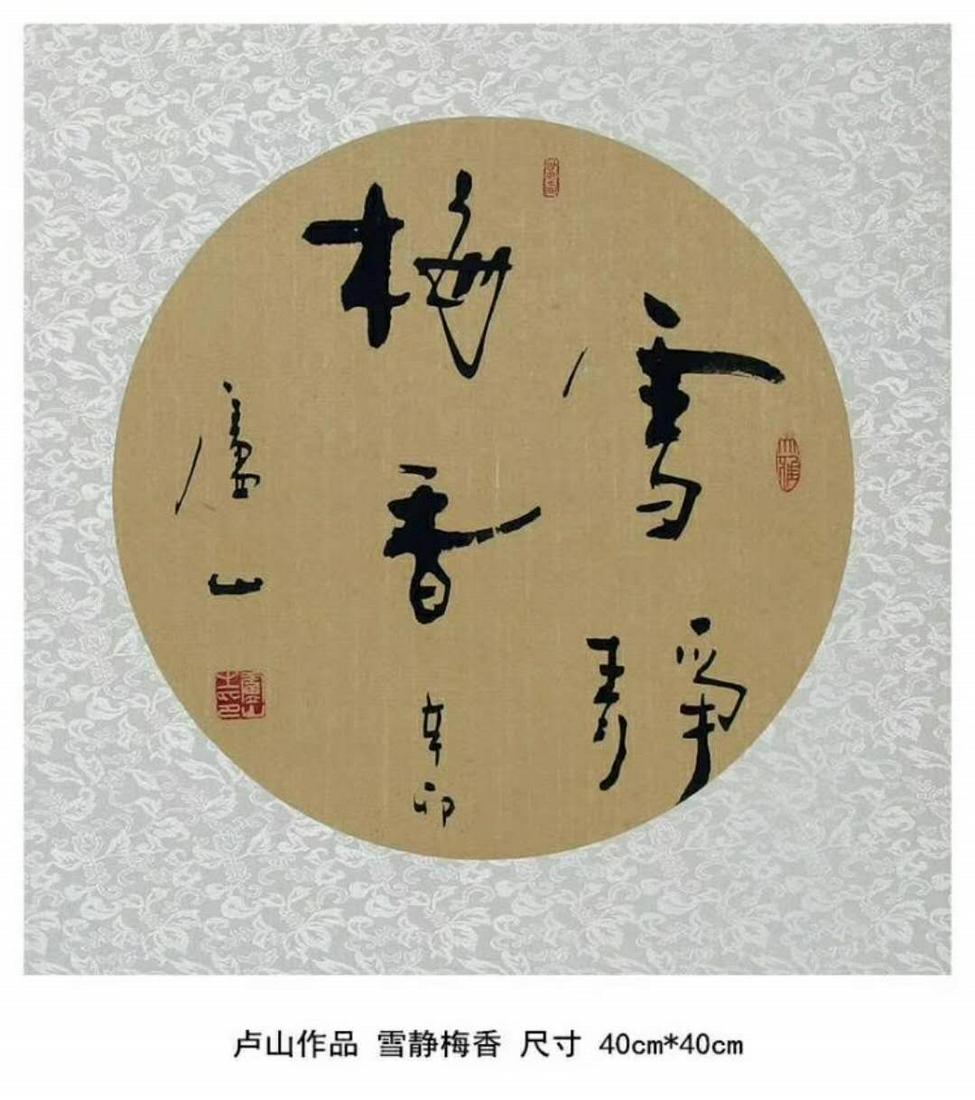 雪靜
梅香
辛卯
盧山
卢山作品 雪静梅香 尺寸 40cm*40cm